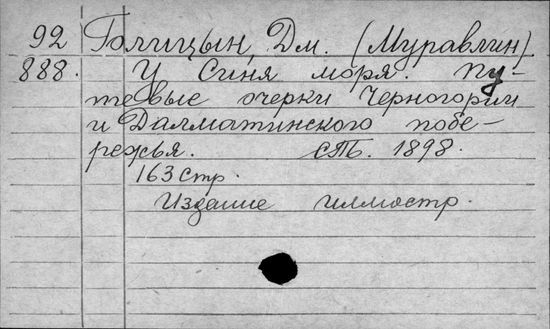 92 Голицын, Дм. (Муравлин)
888. У Синя моря. Пу-
тевые очерки Черногории
и Далматинского побе-
режья. СПб. 1898.
163 стр.
Издание иллюстр.